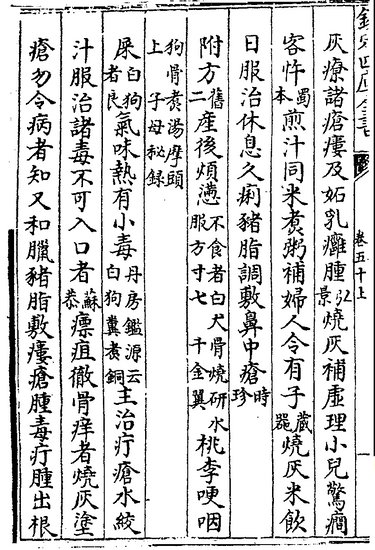 欽定四庫全書
卷五十上
灰療諸瘡瘻及妬乳癰腫弘景燒灰補虛理小兒驚癇
客忤蜀本煎汁同米煮粥補婦人令有子藏器燒灰米飲
日服治休息久痢豬脂調敷鼻中瘡時珍
附方舊二產後煩懣不食者白犬骨燒研水服方寸七千金翼桃李哽咽
狗骨煮湯摩頭上子母秘錄
屎白狗者良氣味熱有小毒丹房鑑源云白狗糞煮銅主治疔瘡水絞
汁服治諸毒不可入口者蘇恭瘭疽徹骨痒者燒灰塗
瘡勿令病者知又和臘豬脂敷瘻瘡腫毒疔腫出根